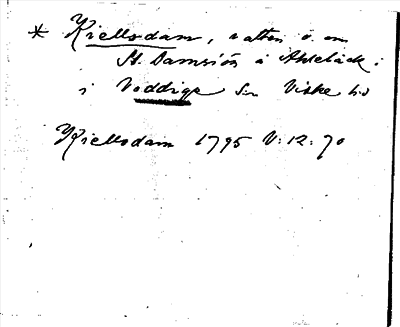 * Kiellsdam, vatten ö. om
St. Damsjön å Ahlebäck i
i Veddige Sn Viske hd
Kiellsdam 1795 V:12:70